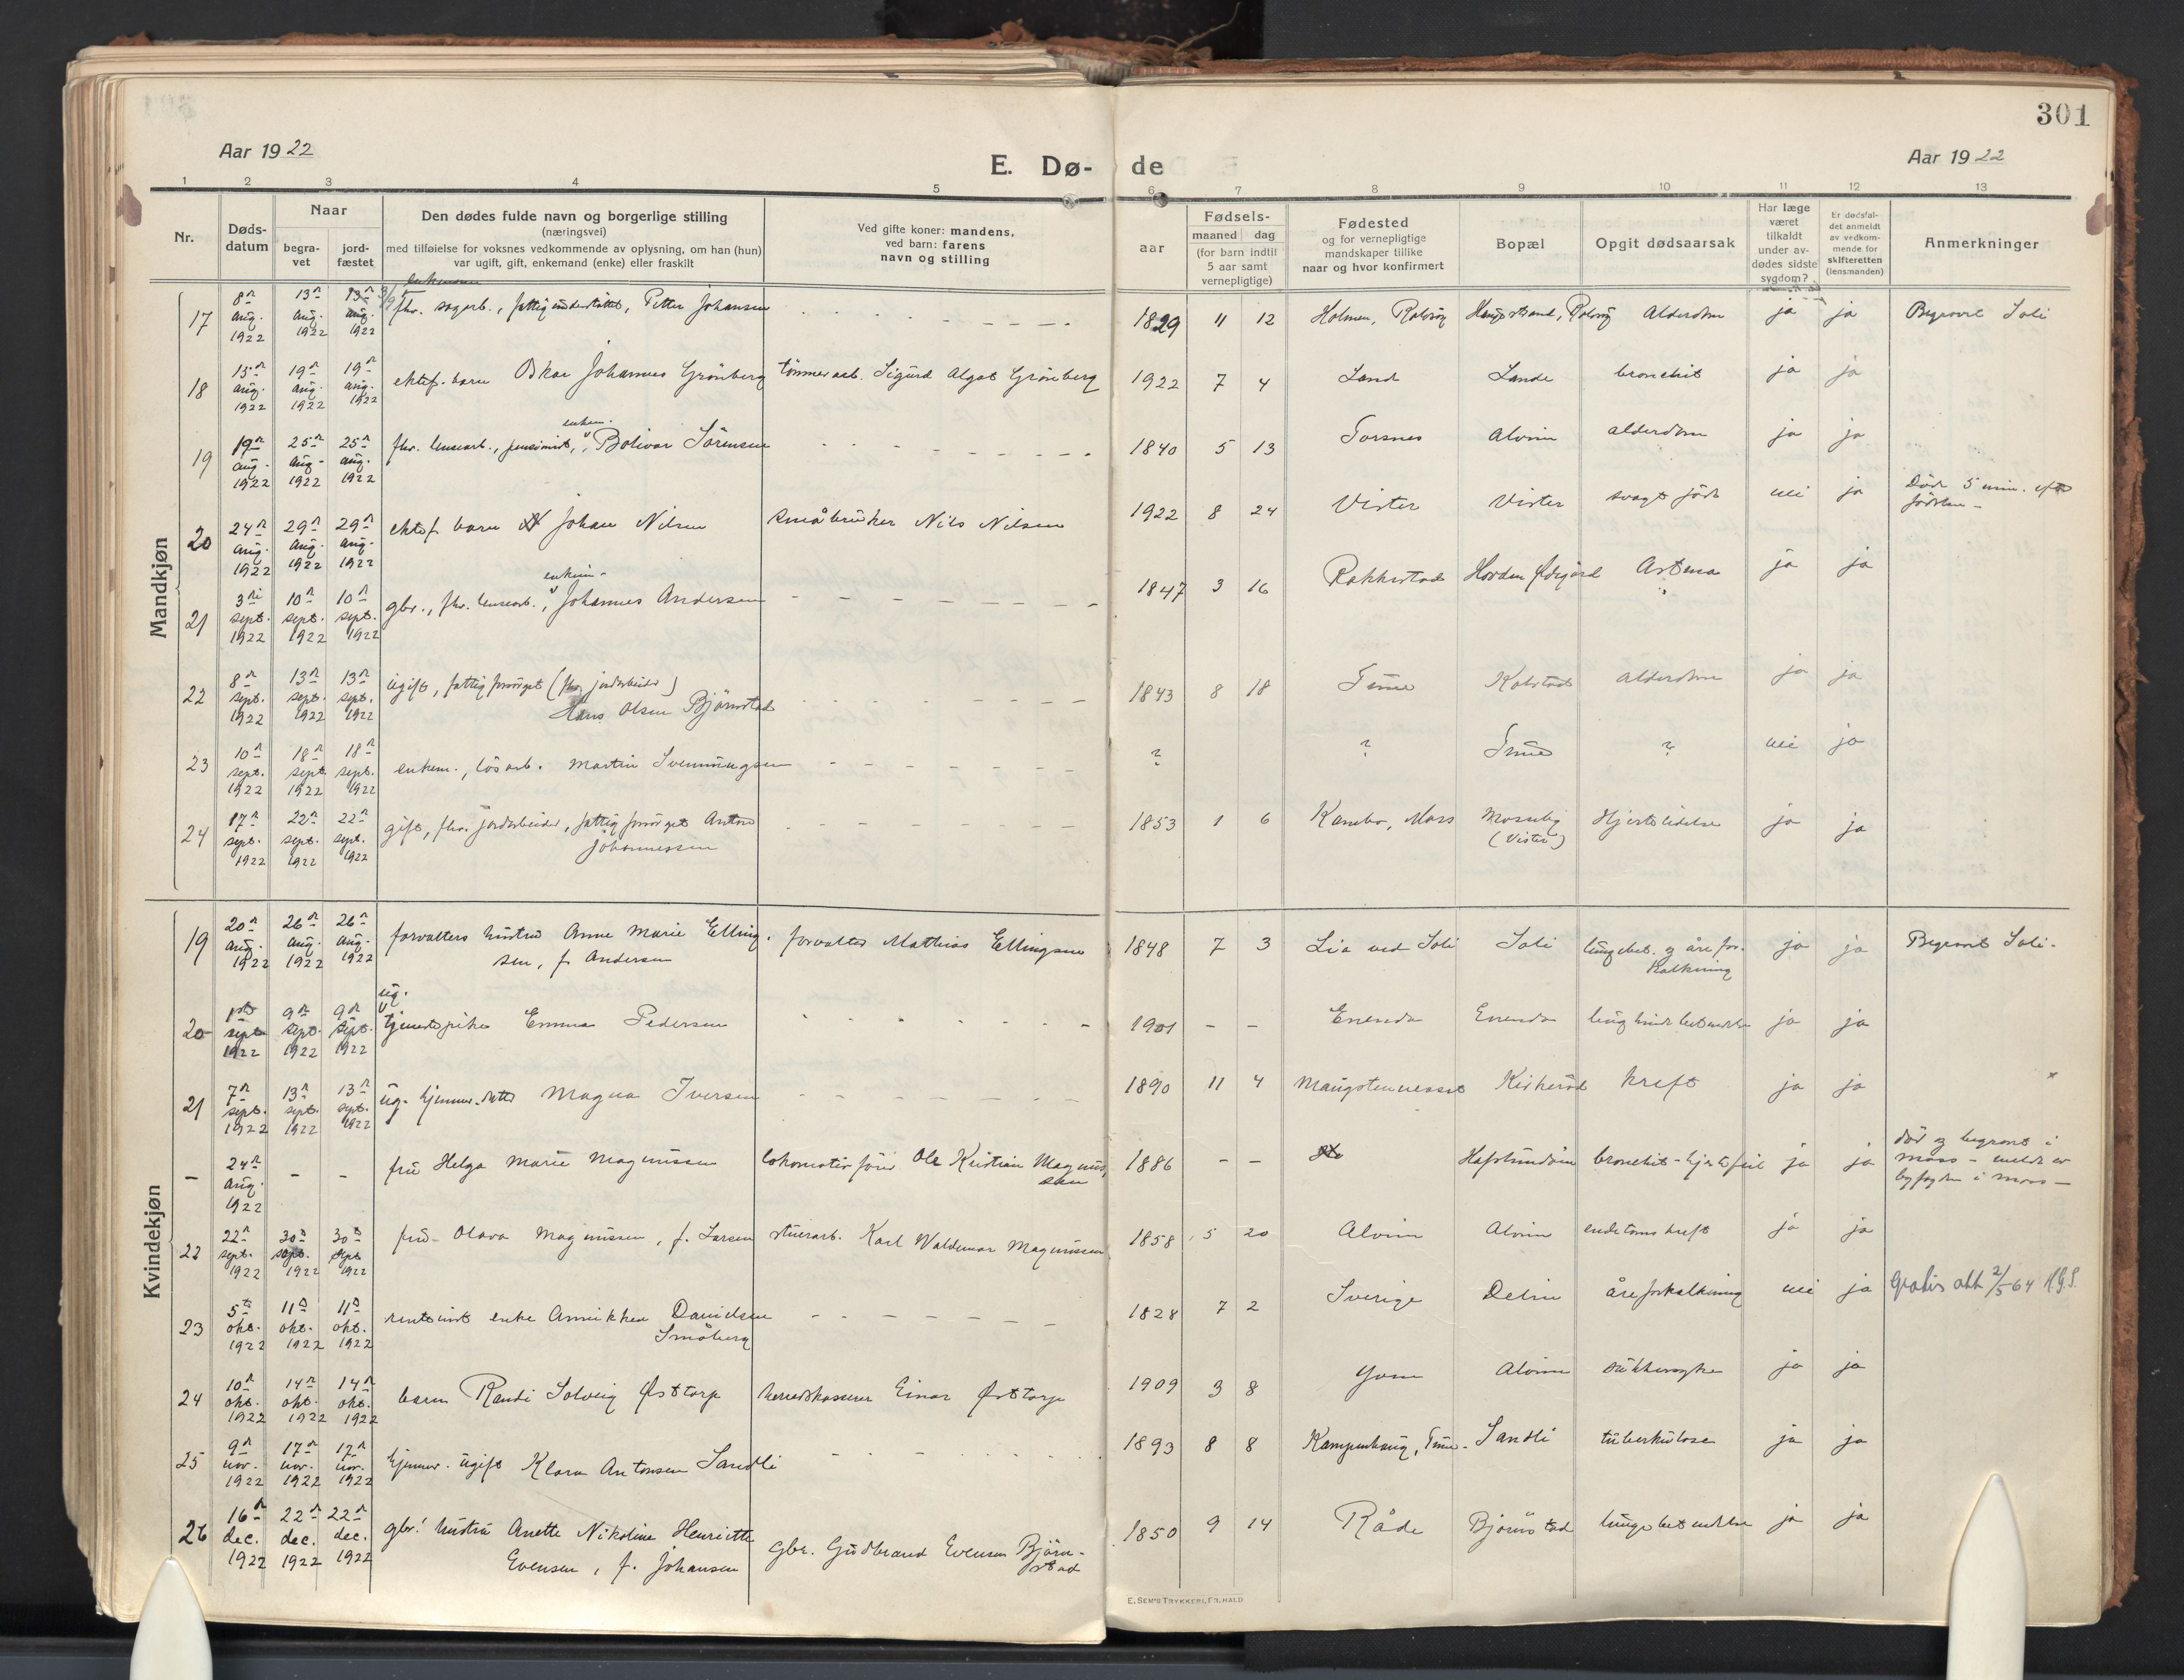 301
Aar 1922
E. Dø-
de
Aar 1922
1 2 3 4 5 6 7 8 9 10 11 12 13
Nr.
Døds-
datum
Naar
begra-
vet
jord-
fæstet
Den dødes fulde navn og borgerlige stilling
(næringsvei)
med tilføielse for voksnes vedkommende av oplysning, om han (hun)
var ugift, gift, enkemand (enke) eller fraskilt
Ved gifte koner: mandens,
ved barn: farens
navn og stilling
aar
Fødsels-
maaned dag
(for barn indtil
5 aar samt
vernepligtige)
Fødested
og for vernepligtige
mandskaper tillike
naar og hvor konfirmert
Bopæl
Opgit dødsaarsak
Har læge
været
tilkaldt
under av-
dødes sidste
sygdom?
Er dødsfal-
det anmeldt
av vedkom-
mende for
skifteretten
(lensmanden)
Anmerkninger
Mandkjøn
17 8n aug. 1922 13n aug. 1922 13n aug. 1922 fhv. sagarb., fattigunderstøttet, Petter Johansen 1829 11 12 Holmen, Rolvsøy Haugestrand, Rolvsøy Alderdom ja ja Begravet Soli
18 15n aug. 1922 19n aug. 1922 19n aug. 1922 ektef. barn Oskar Johannes Grönberg tömmerarb. Sigurd Algot Grönberg 1922 7 4 Lande Lande bronchit ja ja
enkem.
19 19n aug. 1922 25n aug. 1922 25n aug. 1922 fhv. lensearb., pensionist, Bolivar Sörensen 1840 5 13 Torsnes Alvim alderdom ja ja
20 24n aug. 1922 29n aug. 1922 29n aug. 1922 ektef. barn Johan Nilsen småbruker Nils Nilsen 1922 8 24 Vister Vister svagt född nei ja Död 5 min. eft.
födslen -
21 3di sept. 1922 10n sept. 1922 10n sept. 1922 gbr., fhv. lensearb., Johannes Andersen 1847 3 16 Rakkestad Hovden Ødegård Astma ja ja
22 8n sept. 1922 13n sept. 1922 13n sept. 1922 ugift, fattigforsörget (fhv. jordarbeider)
Hans Olsen Björnstad 1843 8 18 Tune Kolstad Alderdom ja ja
23 10n sept. 1922 18n sept. 1922 18n sept. 1922 enkem., lösarb. Martin Svenningsen ? ? Tune ? nei ja
24 17n sept. 1922 22n sept. 1922 22n sept. 1922 gift, fhv. jordarbeider, fattigforsörget Anton
Johannessen 1853 1 6 Kambo, Moss Mosseby
(Vister) Hjertelidelse ja ja
Kvindekjøn
19 20n aug. 1922 26n aug. 1922 26n aug. 1922 forvalters hustru Anne Marie Elling-
sen, f. Andersen forvalter Mathias Ellingsen 1848 7 3 Lia ved Soli Soli lungebet. og årefor-
kalkning ja ja Begravet Soli.
ug.
20 1ste sept 1922 9n sept. 1922 9n sept. 1922 tjenestepike Emma Pedersen 1901 - - Enenda Enenda lunghindebetændelse ja ja
21 7n sept. 1922 13n sept. 1922 13n sept. 1922 ug. hjemmev. datter Magna Iversen 1890 11 4 Maugstenneset Kirkerud kreft ja ja
- 24n aug. 1922 - - fru Helga Marie Magnussen lokomotivförer Ole Kristian Magnus-
sen 1886 - - Hafslundsöen bronchit - hjertefeil ja ja död og begravet i
Moss - meldt av
byfogden i Moss -
22 22n sept. 1922 30n sept. 1922 30te sept 1922 fru Olava Magnussen, f. Larsen stuerarb. Karl Waldemar Magnussen 1858 5 20 Alvim Alvim endetarmskreft ja ja
23 5te okt. 1922 11n okt. 1922 11n okt. 1922 rentenist enke Annikken Davidsen
Småberg 1828 7 2 Sverige Delin åreforkalkning nei ja Gratis att 2/5-64 H.G.S.
24 10n okt. 1922 14n okt. 1922 14n okt. 1922 barn Randi Solveig Østtorp herredskasserer Einar Østtorp 1909 3 8 Yven Alvim sukkersyke ja ja
25 9n nov. 1922 17n nov. 1922 17n nov. 1922 hjemmev. ugift Klara Antonsen Sandli 1893 8 8 Kampenhaug, Tune. Sandli tuberkulose ja ja
26 16n dec. 1922 22n dec. 1922 22n dec. 1922 gbr. hustru Anette Nikoline Henriette
Evensen, f. Johansen gbr. Gudbrand Evensen Björn-
stad 1850 9 14 Råde Björnstad lungebetændelse ja ja
E. SEM'S TRYKKERI, FR.HALD